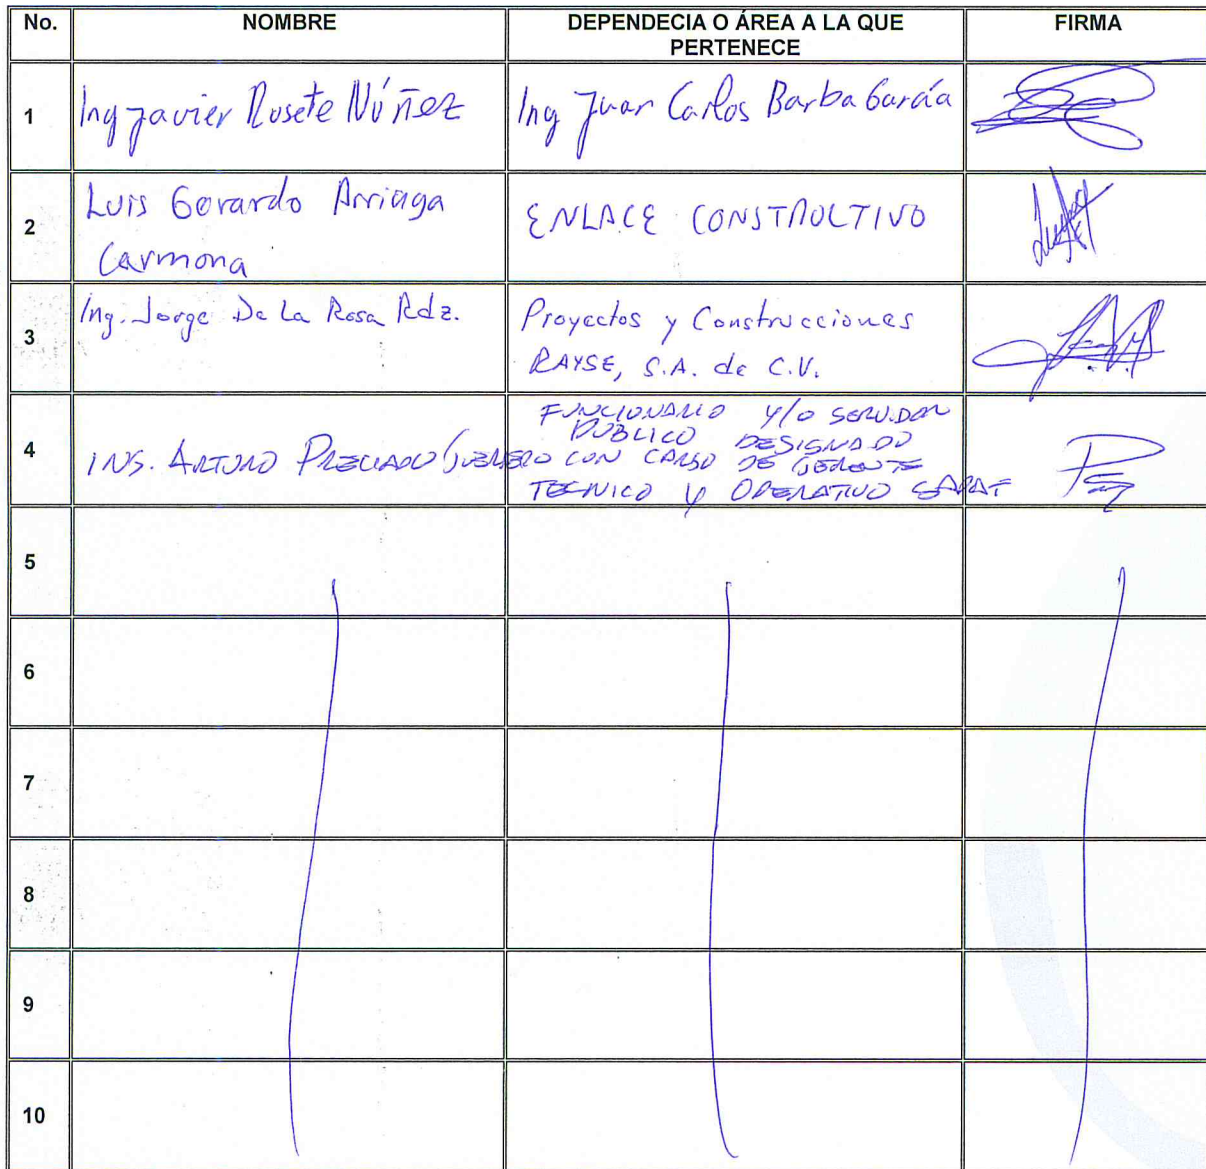 No. NOMBRE DEPENDECIA O ÁREA A LA QUE PERTENECE FIRMA
1 Ing Javier Rosete Núñez Ing Juan Carlos Barba García
2 Luis Gerardo Arriaga
Carmona
ENLACE CONSTRUCTIVO
3 Ing. Jorge De La Rosa Rdz.
Proyectos y Construcciones
RAYSE, S.A. de C.V.
4 ING. ARTURO PRECIADO
FUNCIONARIO Y/O SERVIDOR
PUBLICO DESIGNADO
CON CARGO DE GERENTE
TECNICO Y OPERATIVO
5
6
7
8
9
10